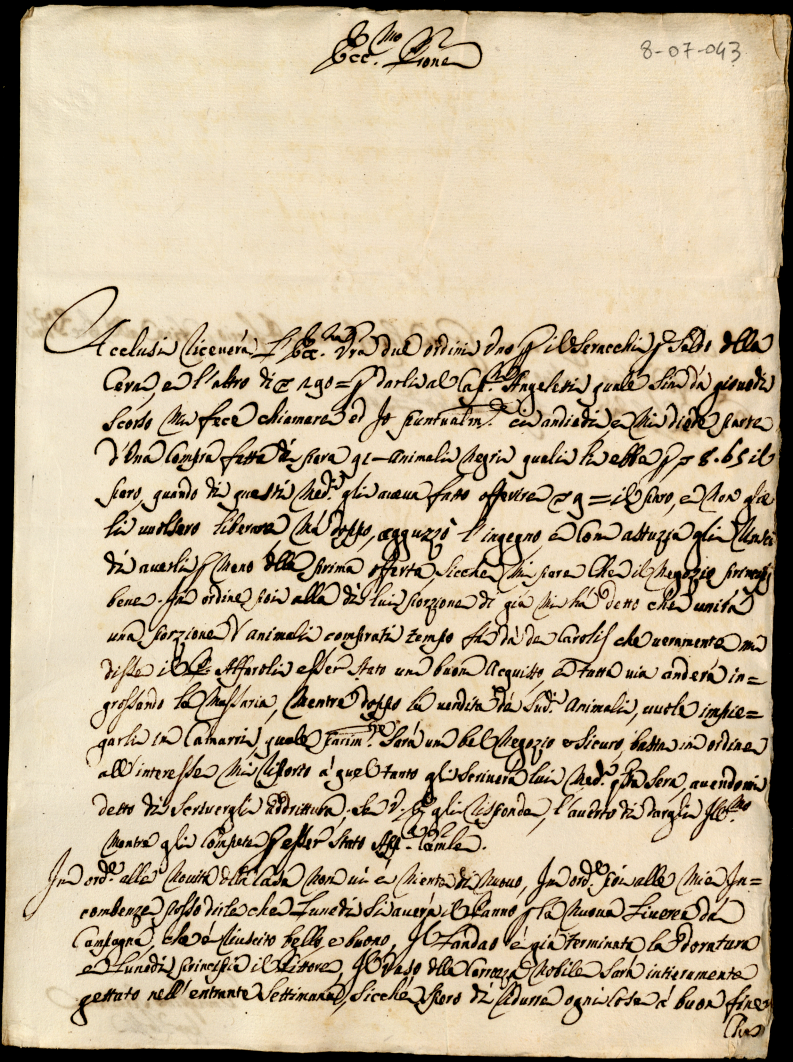 Ecc.mo Prone
8-07-043
Acclusi riceverà L'Ecc.za Vra due ordini uno p il Seracchi p saldo della
Cera, e l'altro di 190 = p darli al Cap.no Angelesi, quale sin da giovedì
scorso mi fece chiamare ed Io puntualm.te ci andiedi, e mi diede parte
d'una compra fatta di para 91 – animali negri quali li ebbe p 8.65 il
paro, quando di questi Med.i gli aveva fatto offerire 9 = il paro, e non glie
li volsero liberare Mà doppo, agguzzò l'ingegno, e con astuzia gli
di averli p meno della prima offerta, sicche mi pare che il Negozio principj
bene. In ordine poi alla di lui porzione di già mi hà detto che unità
una porzione d'animali comprati tempo fà da de Carolis che veramente mi
disse il Affaroli esser stato un buon acquisto, e tutta via anderà in=
grossando la Massaria, mentre doppo la vendita de Sud.i Animali, vuole impie=
garli in Camarri, quale parim.te Sarà un bel Negozio e sicuro, basta in ordine
all'interesse mi riporto à quel tanto gli scriverà lui Med.o q.ta sera, avendomi
detto di scrivergli addrittura. Se V. E. gli risponde, l'averto di dargli Ill.mo
mentre gli compete p esser stato
In ord.e alle Novità della Casa non vi è niente di nuovo, In ord.e poi alle mie In=
combenze posso dirle che Lunedì si averà il Panno p la nuova Liverea da
Campagna, che è riuscito bello e buono, Il Landao è già terminata la doratura
e Lunedì principia il Pittore, Il Vaso della Carrozza Nobile sarà intieramente
gettato nell'entrante Settimana, sicché spero di ridurre ogni cosa à buon fine